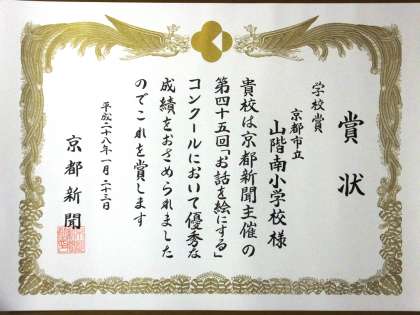 賞状
学校賞
京都市立
山階南小学校 様
貴校は京都新聞主催の
第四十五回「お話を絵にする」
コンクールにおいて優秀な
成績をおさめられました
のでこれを賞します
平成二十八年一月二十三日
京都新聞